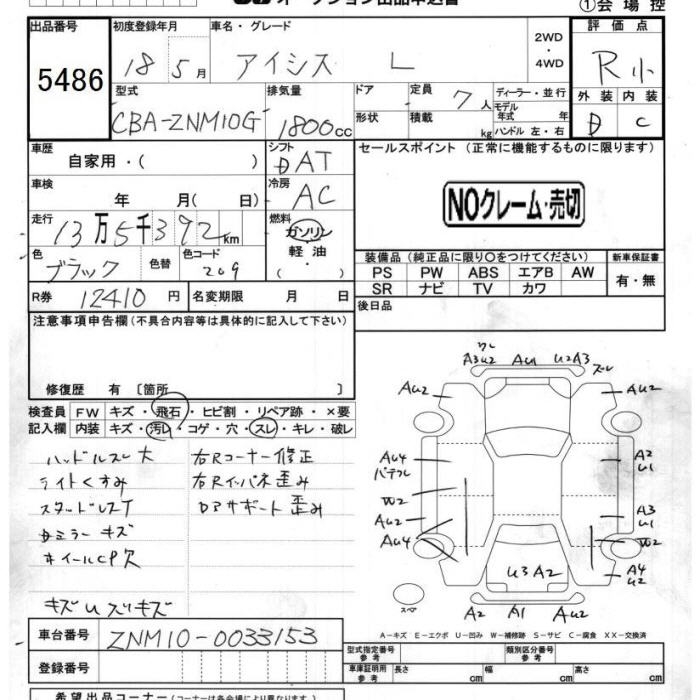 オークション出品申込書
①会場控
出品番号
5486
初度登録年月
18 5月
車名・グレード
アイシス L
2WD
・
4WD
評価点
R 小
外装 内装
D C
型式
CBA-ZNM10G
排気量
1800cc
ドア
形状
定員
7人
積載
kg
ディーラー・並行
モデル
年式 年
ハンドル 左・右
車歴
自家用・( )
シフト
DAT
セールスポイント (正常に機能するものに限ります)
NOクレーム・売切
車検
年 月( 日)
冷房
AC
走行
13万5千392km
燃料
ガソリン
軽油
・( )
色
ブラック
色替
色コード
209
装備品(純正品に限り○をつけてください)
PS PW ABS エアB AW
SR ナビ TV カワ
新車保証書
有・無
R券 12410円
名変期限 月 日
後日品
注意事項申告欄(不具合内容等は具体的に記入して下さい)
修復歴 有 〔箇所 〕
検査員 FW キズ・飛石・ヒビ割・リペア跡・×要
記入欄 内装 キズ・汚レ・コゲ・穴・スレ・キレ・破レ
ハンドルスレ大
ライトくすみ
スタッドレスT
Dミラーキズ
ホイールCP欠
キズUスリキズ
右Rコーナー修正
右Rインパネ歪み
Dアサポート歪み
ワレ
A3U2 AU1 U2A3 スレ
AU2 AU2
AU4
バテフレ
W2
AU2
AU4
A2
U1
A3
U1
W2
A4
U2
U3 A2
スペア
A2 A1 AU2
A−キズ E−エクボ U−凹み W−補修跡 S−サビ C−腐食 XX−交換済
車台番号 ZNM10-0033153
登録番号
型式指定番号
参考
類別区分番号
参考
車庫証明用
参考
長さ cm 幅 cm 高さ cm
希望出品コーナー(コーナーは各会場により異なります)